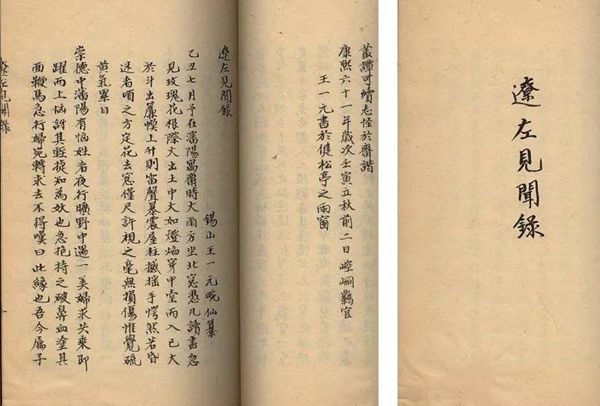 遼左見聞錄
叢譚可續志怪於齊諧
康熙六十一年歲次壬寅立秋前二日崆峒羈官
王一元書於健松亭之雨窗
遼左見聞錄
錫山王一元畹仙纂
乙丑七月予在瀋陽寓齋時大雨方坐北窓憑几讀書忽
見玫瑰花根際火出土中大如燈焰穿中堂而入已大
於斗出簾幙上升則雷聲暴震屋柱撼搖予愕然若昏
迷者頃之方定花去窓僅尺許視之毫無損傷惟覺硫
黄氣累日
崇德中瀋陽有愷姓者夜行曠野中遇一美婦求共乘即
躍而上愷訝其輕捷知為妖也急抱持之破鼻血塗其
面鞭馬急行婦宛轉求去不得嘆曰此緣也吾今屬子
遼左見聞錄